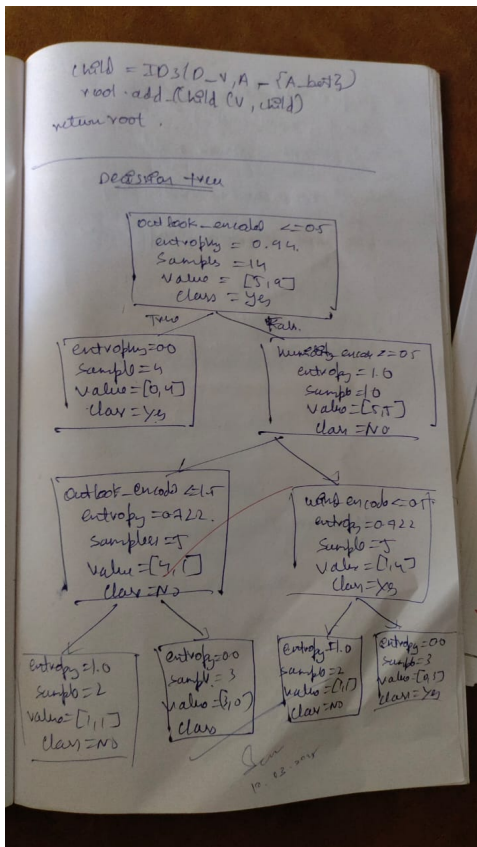 child = ID3(D_V, A - {A_best})
root.add_child (V, child)
return root.
Decision tree
outlook_encoded <=0.5
entrophy = 0.94.
Samples = 14
Value = [5,9]
Class = Yes
True
entrophy=0.0
Sample = 4
Value = [0,4]
Clas = Yes
entropy = 1.0
Sample = 10
Value = [5,5]
Class = NO
outlook_encode <=1.5
entropy = 0.722.
Samples =5
Value = [4,1]
Class = No
wind encode <=0.5
entropy = 0.922
Sample = 5
Value = [1,4]
Class = Yes
entropy = 1.0
Sample = 2
Value = [1,1]
Class = NO
entropy=0.0
Sample = 3
Value = [3,0]
Class
entropy = 1.0
Sample = 2
Value = [1,1]
Class = NO
entropy = 0.0
Sample = 3
Class = Yes